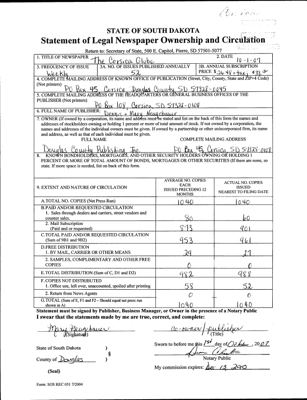 STATE OF SOUTH DAKOTA
Statement of Legal Newspaper Ownership and Circulation
Return to: Secretary of State, 500 E. Capitol, Pierre, SD 57501-5077
1. TITLE OF NEWSPAPER The Corsica Globe 2. DATE 10-1-07
3. FREQUENCY OF ISSUE Weekly
3A. NO. OF ISSUES PUBLISHED ANNUALLY 52
3B. ANNUAL SUBSCRIPTION PRICE
4. COMPLETE MAILING ADDRESS OF KNOWN OFFICE OF PUBLICATION (Street, City, County, State and ZIP+4 Code)
(Not printers)
PO Box 45 Corsica Douglas County SD 57328-0045
5. COMPLETE MAILING ADDRESS OF THE HEADQUARTERS OR GENERAL BUSINESS OFFICES OF THE
PUBLISHER (Not printers)
PO Box 108, Corsica, SD 57328
6. FULL NAME OF PUBLISHER:
7. OWNER (If owned by a corporation, its name and address must be stated and list on the back of this form the names and
addresses of stockholders owning or holding 1 percent or more of total amount of stock. If not owned by a corporation, the
names and addresses of the individual owners must be given. If owned by a partnership or other unincorporated firm, its name
and address, as well as that of each individual must be given.
FULL NAME COMPLETE MAILING ADDRESS
Douglas County Publishing Inc. PO Box 45 Corsica SD 57328
8. KNOWN BONDHOLDERS, MORTGAGES, AND OTHER SECURITY HOLDERS OWNING OR HOLDING 1
PERCENT OR MORE OF TOTAL AMOUNT OF BONDS, MORTGAGES OR OTHER SECURITIES (If there are none, so
state. If more space is needed, list on back of this form.
9. EXTENT AND NATURE OF CIRCULATION
AVERAGE NO. COPIES EACH ISSUED PRECEDING 12 MONTHS
ACTUAL NO. COPIES ISSUED NEAREST TO FILING DATE
A. TOTAL NO. COPIES (Net Press Run) 1040 1040
B. PAID AND/OR REQUESTED CIRCULATION
1. Sales through dealers and carriers, street vendors and
counter sales. 80 60
2. Mail Subscription
(Paid and or requested) 873 901
C. TOTAL PAID AND/OR REQUESTED CIRCULATION
(Sum of 9B1 and 9B2) 953 961
D. FREE DISTRIBUTION
1. BY MAIL, CARRIER OR OTHER MEANS 29 27
2. SAMPLES, COMPLIMENTARY AND OTHER FREE
COPIES 0 0
E. TOTAL DISTRIBUTION (Sum of C, D1 and D2) 982 988
F. COPIES NOT DISTRIBUTED
1. Office use, left over, unaccounted, spoiled after printing 58 52
2. Return from News Agents 0 0
G. TOTAL (Sum of E, F1 and F2 - Should equal net press run
shown in A) 1040 1040
Statement must be signed by Publisher, Business Manager, or Owner in the presence of a Notary Public
I swear that the statements made by me are true, correct, and complete:
co-owner/publisher
(Signature) (Title)
State of South Dakota )
) §
County of Douglas )
Sworn to before me this 1st day of October, 2007
Notary Public
(Seal) My commission expires:
Form: SOS REC 051 7/2004